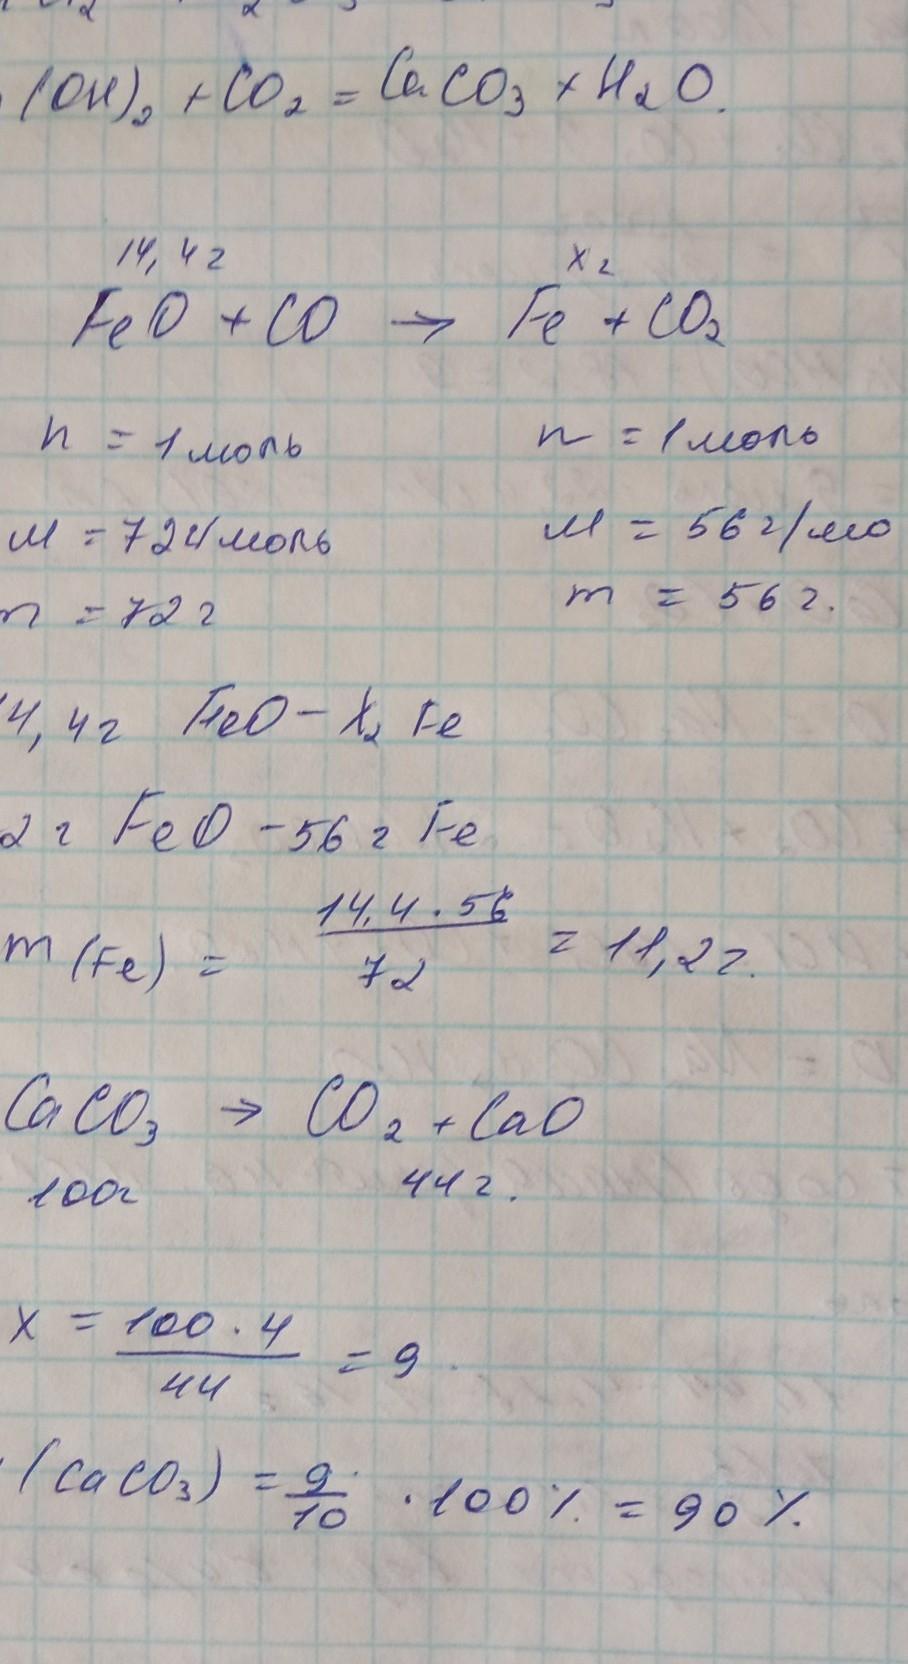 (OH)₂ + CO₂ = CaCO₃ + H₂O.
14,4 г х г
FeO + CO → Fe + CO₂
n = 1 моль n = 1 моль
M = 72 г/моль M = 56 г/мо
m = 72 г m = 56 г.
4,4 г FeO – X г Fe
2 г FeO – 56 г Fe
m (Fe) = 14,4 · 56 / 72 = 11,2 г.
CaCO₃ → CO₂ + CaO
100г 44 г.
x = 100 · 4 / 44 = 9.
(CaCO₃) = 9 / 10 · 100% = 90 %.